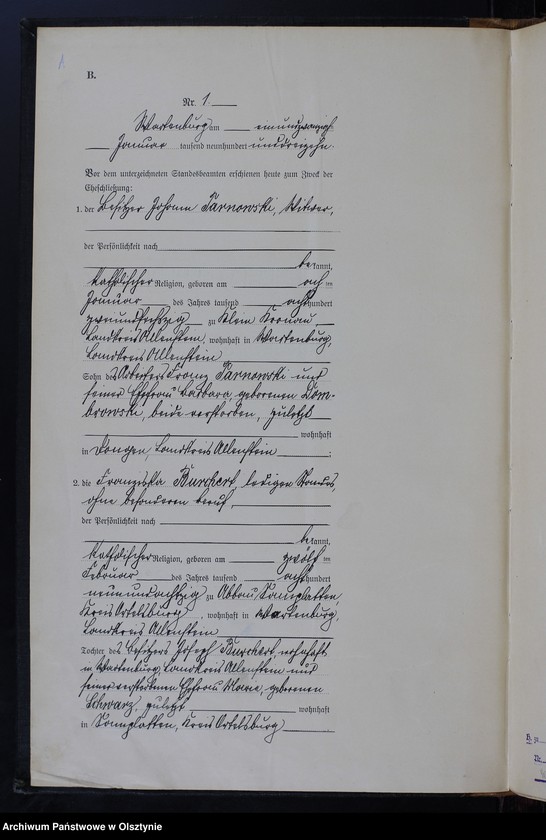 B.
Nr. 1
Wartenburg am einundzwanzig
Januar tausend neunhundert unddreizehn.
Vor dem unterzeichneten Standesbeamten erschienen heute zum Zweck der
Eheschließung:
1. der Besitzer Johann Parnowski, Witwer,
der Persönlichkeit nach
be kannt,
katholischer Religion, geboren am ach ten
Januar des Jahres tausend acht hundert
zweiundsechszig zu Klein Kronau
Landkreis Allenstein, wohnhaft in Wartenburg,
Landkreis Allenstein
Sohn des Franz Parnowski und
seiner Ehefrau Barbara, geborenen Dom-
browski, beide verstorben, zuletzt
wohnhaft
in Dongen, Landkreis Allenstein ;
2. die Franziska Burchert, ledigen Standes,
ohne besonderen Beruf,
der Persönlichkeit nach
be kannt,
katholischer Religion, geboren am zwölf ten
Februar des Jahres tausend acht hundert
neunundachtzig zu Abbau Samplatten,
Kreis Ortelsburg , wohnhaft in Wartenburg,
Landkreis Allenstein
Tochter des Besitzers Joseph Burchert, wohnhaft
in Wartenburg, Landkreis Allenstein und
seiner verstorbenen Ehefrau Marie, geborenen
Schwarz, zuletzt wohnhaft
in Samplatten, Kreis Ortelsburg
Nr.
Archiwum Państwowe w Olsztynie